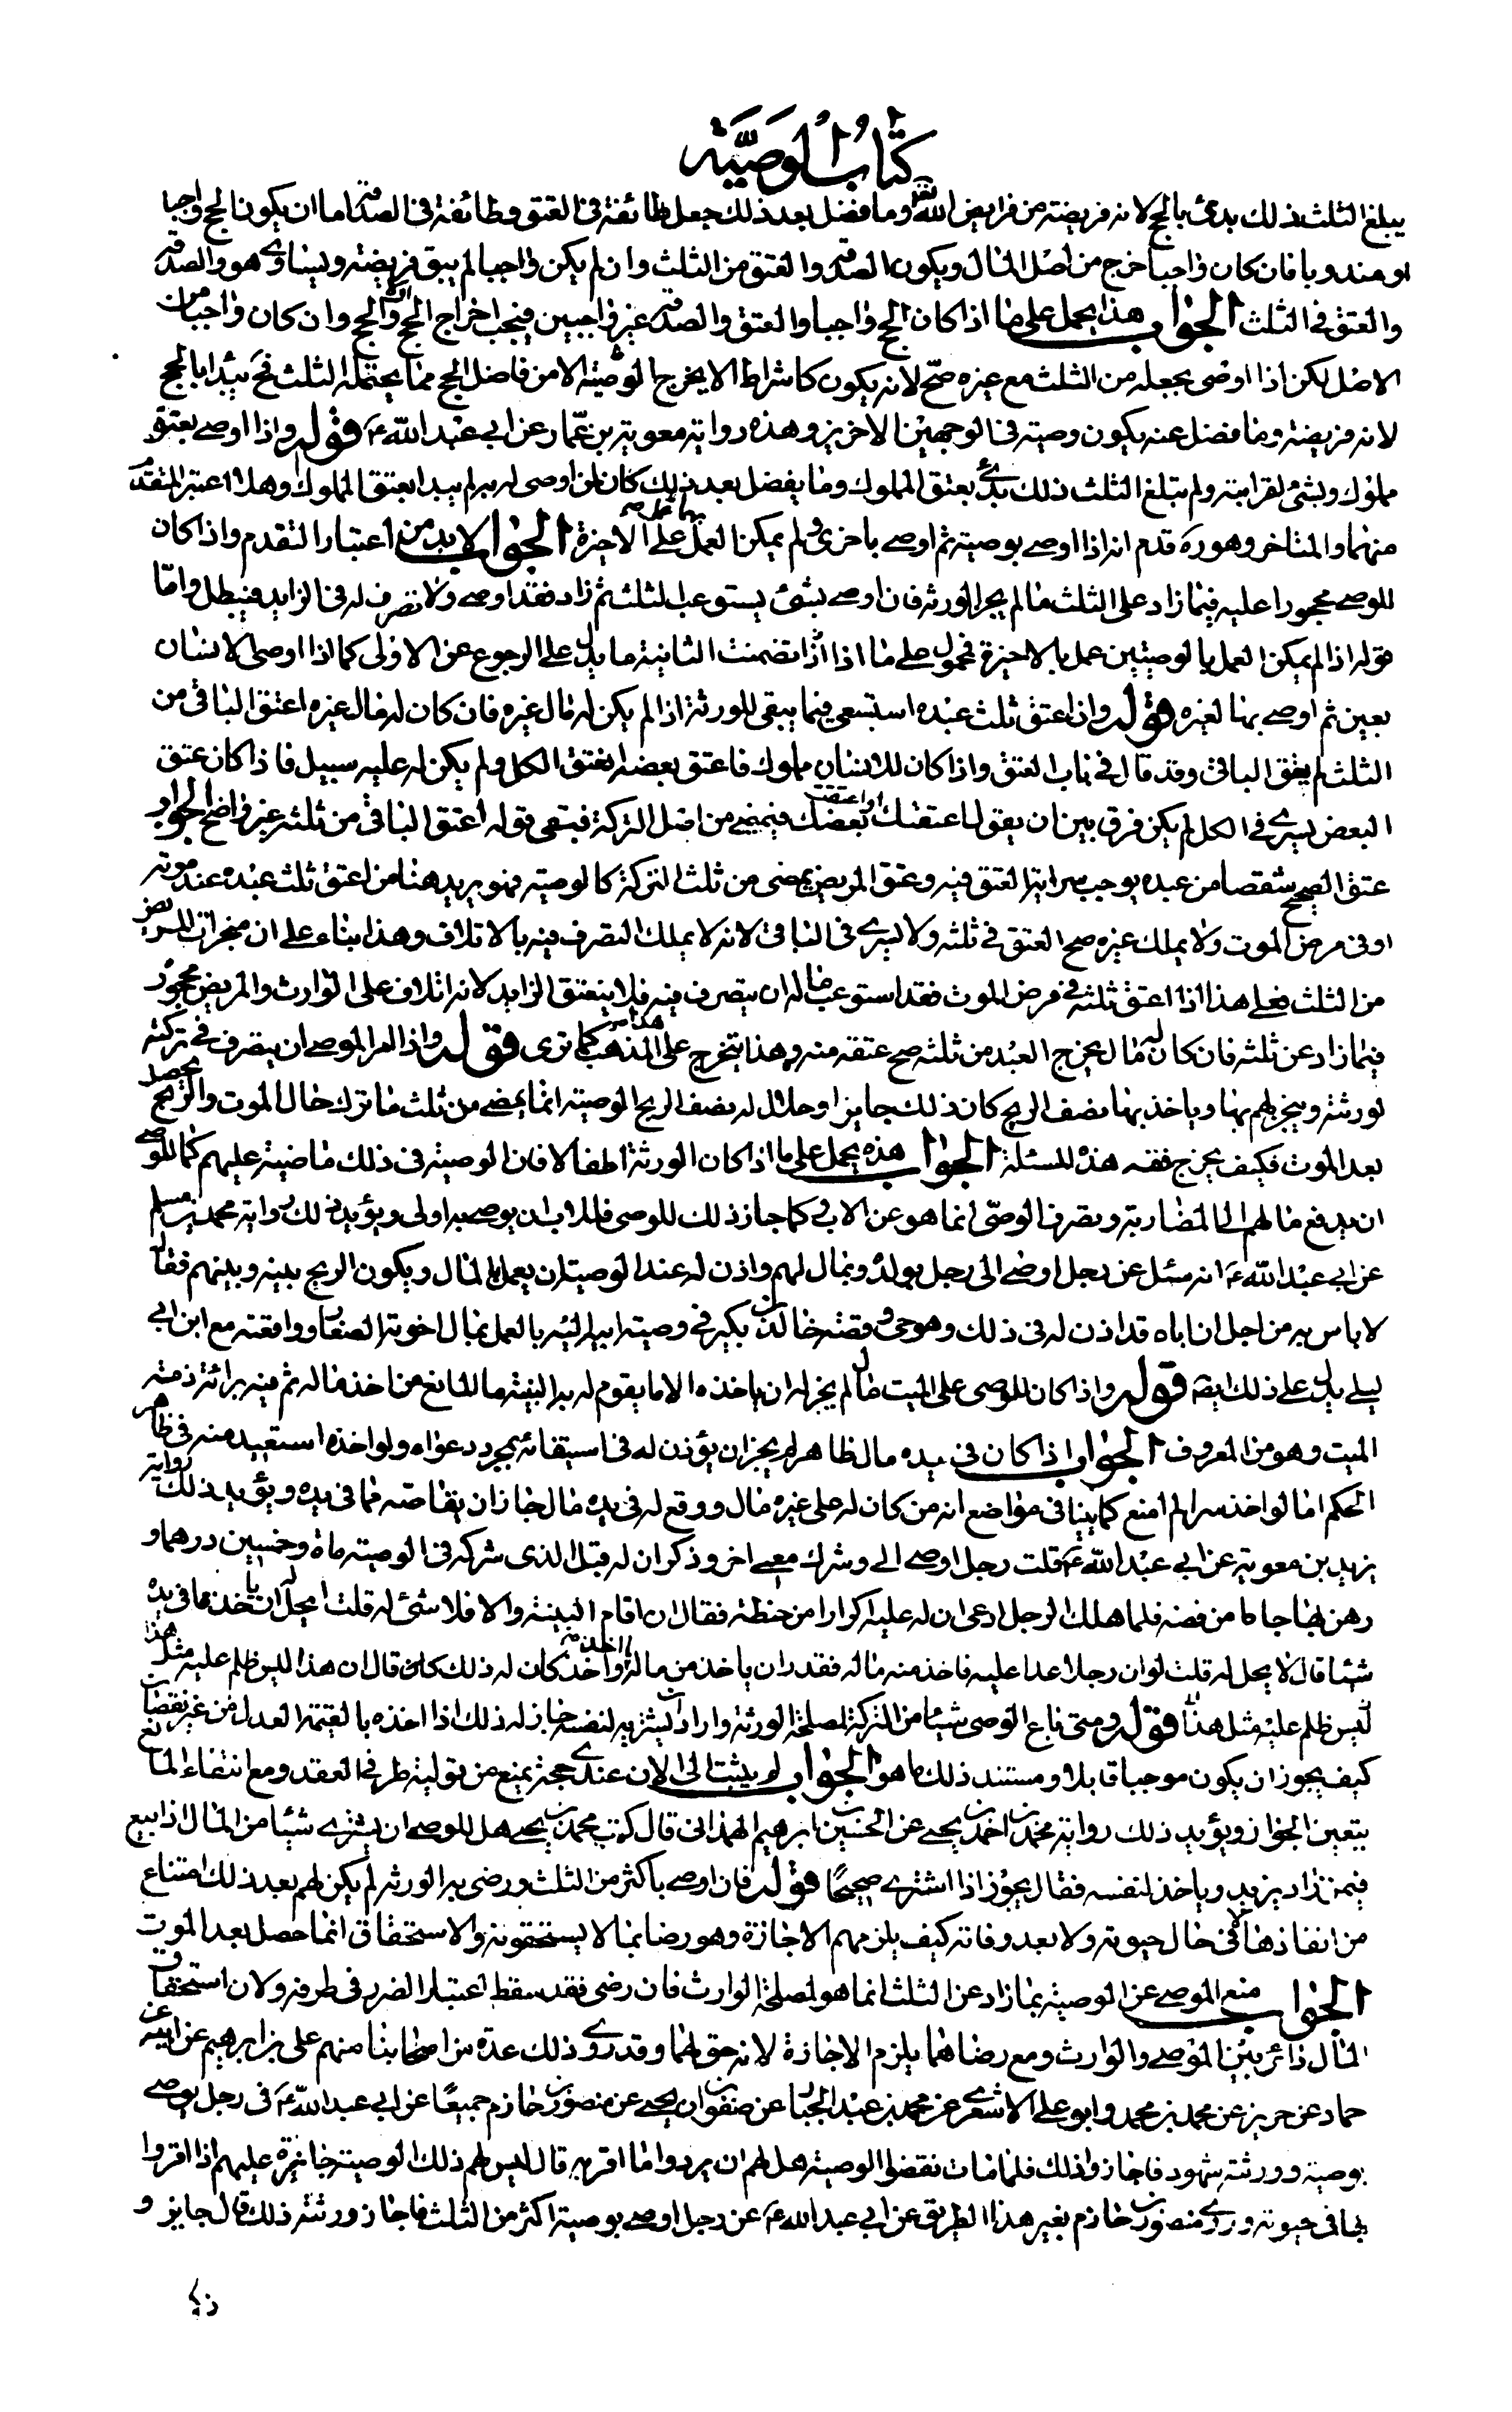 كتاب الوصية
يبلغ الثلث ذلك بدئ بالحج لانه فريضة من فرايض الله وما فضل بعد ذلك جعل طائفة في العتق وطائفة في الصدقة اما ان يكون الحج واجبا
او مندوبا فان كان واجبا خرج من اصل المال ويكون الصدقة والعتق من الثلث وان لم يكن واجبا لم يبق فريضة ويساوي هو والصدقة
والعتق في الثلث الجواب هذا يحمل على ما اذا كان الحج واجبا والعتق والصدقة غير واجبين فيجب اخراج الحج والحج وان كان واجبا من
الاصل لكن اذا اوصى بجعله من الثلث مع غيره صح لانه يكون كاشراط الا يخرج الوصية الا من فاضل الحج مما يحتمله الثلث فح يبدا بالحج
لانه فريضة وما فضل عنه يكون وصية في الوجهين الاخرين وهذه رواية معوية بن عمار عن ابي عبد الله ع قوله واذا اوصى بعتق
مملوك وبشئ لقرابته ولم يبلغ الثلث ذلك بدئ بعتق المملوك وما يفضل بعد ذلك كان لمن اوصى له به لم يبدا بعتق المملوك وهلا اعتبر المتقدم
منهما والمتاخر وهوره قدم انه اذا اوصى بوصية ثم اوصى باخرى ولم يمكن العمل بهما عمل على الاخيرة الجواب لا بد من اعتبار التقدم واذا كان
للوصي محجورا عليه فيما زاد على الثلث ما لم يجز الورثة فان اوصى بشئ يستوعب الثلث ثم زاد فقد اوصى ولا تصرف له في الزايد فيبطل واما
قوله اذا لم يمكن العمل بالوصيتين عمل بالاخيرة فمحمول على ما اذا تضمنت الثانية ما يدل على الرجوع عن الاولى كما اذا اوصى لانسان
بعين ثم اوصى بها لغيره قوله واذا عتق ثلث عبده استسعى فيما يبقى للورثة اذا لم يكن له مال غيره فان كان له مال غيره اعتق الباقي من
الثلث لم يعتق الباقي وقد قال في باب العتق واذا كان للانسان مملوك فاعتق بعضه انعتق الكل ولم يكن له عليه سبيل فاذا كان عتق
البعض يسري في الكل لم يكن فرق بين ان يقول اعتقتك او اعتقت بعضك فيمضي من اصل التركة فيبقى قوله اعتق الباقي من ثلثه غير واضح الجواب
عتق الصحيح شقصا من عبده يوجب سراية العتق فيه وعتق المريض يمضى من ثلث التركة كالوصية فهو يريد هنا من اعتق ثلث عبده عند موته
او في مرض الموت ولا يملك غيره صح العتق في ثلثه ولا يسري في الباقي لانه لا يملك التصرف فيه بالاتلاف وهذا بناء على ان منجزات المريض
من الثلث فعلى هذا اذا اعتق ثلثه في مرض الموت فقد استوعب ماله ان يتصرف فيه فلا ينعتق الزايد لانه اتلاف على الوارث والمريض محجور
فيما زاد عن ثلثه فان كان له مال يخرج العبد من ثلثه صح عتقه منه وهذا يتخرج على المذهب كما ترى قوله واذا امر الموصي ان يتصرف في تركته
لورثته ويتجر لهم بها وياخذ بها نصف الربح كان ذلك جايزا وحلال له نصف الربح الوصية انما يمضي من ثلث ما ترك حال الموت والربح يحصل
بعد الموت فكيف يخرج فقه هذه المسئلة الجواب هذه يحمل على ما اذا كان الورثة اطفالا فان الوصية في ذلك ماضية عليهم كما للوصي
ان يدفع مالهم الى المضاربة وتصرف الوصي انما هو عن الاب كما جاز ذلك للوصي فللاب ان يوصي به اولى ويؤيد ذلك رواية محمد بن مسلم
عن ابي عبد الله ع انه سئل عن رجل اوصى الى رجل بولده وبمال لهم واذن له عند الوصية ان يعمل بالمال ويكون الربح بينه وبينهم فقال
لا باس به من اجل ان اباه قد اذن له في ذلك وهو حي وقصة خالد بن بكير في وصية ابيه اليه بالعمل بمال اخوته الصغار وواقعته مع ابن ابي
ليلى يدل على ذلك ايضا قوله واذا كان للوصي على الميت مال لم يجز له ان ياخذه الا ما يقوم له به البينة ما المانع من اخذ ماله ثم فيه براءة ذمة
الميت وهو من المعروف الجواب اذا كان في يده مال ظاهر لم يجز ان يؤذن له في استيفائه بمجرد دعواه ولو اخذه استعيد منه في ظاهر
الحكم اما لو اخذه سرا لم امنع كما بينا في مواضع انه من كان له على غيره مال ووقع له في يده مال جاز ان يقاصه مما في يده ويؤيد ذلك رواية
يزيد بن معوية عن ابي عبد الله ع قلت رجل اوصى الي وشرك معي اخر وذكر ان له قبل الذى شركه في الوصية ماة وخمسين درهما و
رهن بها جاما من فضة فلما هلك الرجل ادعى ان له عليه اكرارا من حنطة فقال ان اقام البينة والا فلا شئ له قلت ايحل له ان ياخذ مما في يده
شيئا قال لا يحل له قلت لو ان رجلا عدا عليه فاخذ منه ماله فقدر ان ياخذ من ماله ما اخذ كان له ذلك قال ان هذا ليس ظلم عليه مثل هذا
ليس ظلم عليه مثل هذا قوله ومتى باع الوصي شيئا من التركة لمصلحة الورثة واراد ان يشتريه لنفسه جاز له ذلك اذا اخذه بالقيمة العدل من غير نقصان
كيف يجوز ان يكون موجبا قابلا ومستند ذلك ما هو الجواب لم يثبت الى الان عندي حجة تمنع من تولية طرفي العقد ومع انتفاء المانع
يتعين الجواز ويؤيد ذلك رواية محمد بن احمد بن يحيى عن الحسين بن ابرهيم الهمذاني قال كتب محمد بن يحيى هل للوصي ان يشتري شيئا من المال اذا بيع
فيمن زاد يزيد وياخذ لنفسه فقال يجوز اذا اشترى صحيحا قوله فان اوصى باكثر من الثلث ورضي به الورثة لم يكن لهم بعد ذلك امتناع
من انفاذها لا في حال حيوته ولا بعد وفاته كيف يلزمهم الاجازة وهو رضا بما لا يستحقونه والاستحقاق انما حصل بعد الموت
الجواب منع الموصي عن الوصية بما زاد عن الثلث انما هو لمصلحة الوارث فان رضى فقد سقط اعتبار الضرر في طرفه ولان استحقاق
المال دائر بين الموصي والوارث ومع رضاهما يلزم الاجازة لانه حق لهما وقد روى ذلك عدة من اصحابنا منهم علي بن ابرهيم عن ابيه عن
حماد عن حريز عن محمد بن محمد وابو علي الاشعري عن محمد بن عبد الجبار عن صفوان بن يحيى عن منصور بن حازم جميعا عن ابي عبد الله ع في رجل يوصي
بوصية وورثته شهود فاجازوا ذلك فلما مات نقضوا الوصية هل لهم ان يردوا ما اقر به قال ليس لهم ذلك الوصية جايزة عليهم اذا اقروا
بها في حيوته وروى منصور بن حازم بغير هذا الطريق عن ابي عبد الله ع عن رجل اوصى بوصية اكثر من الثلث فاجاز ورثته ذلك قال جايز و